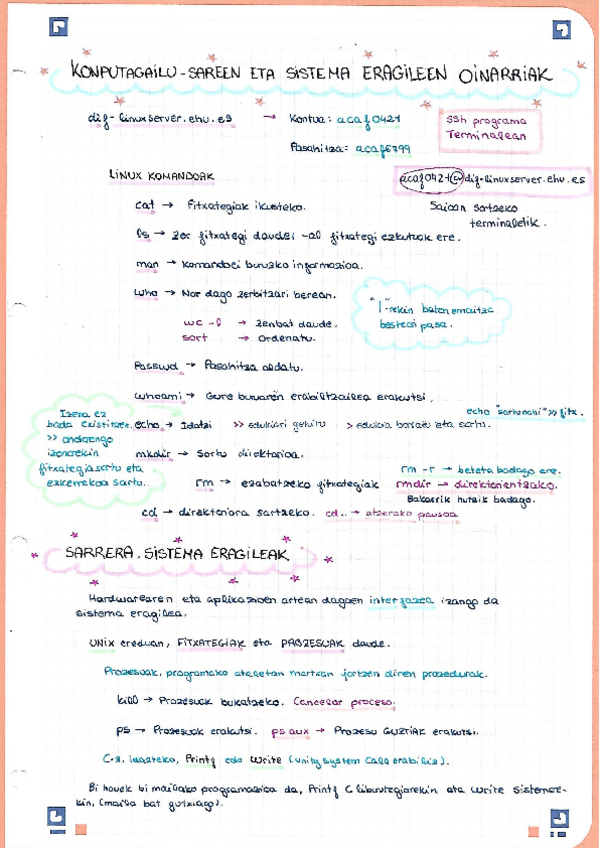 KONPUTAGAILU-SAREEN ETA SISTEMA ERAGILEEN OINARRIAK
dif-linuxserver.ehu.es → Kontua: acaf0421
ssh programa
Terminalean
Pasahitza: acaf6799
LINUX KOMANDOAK
acaf0421@dif-linuxserver.ehu.es
Saioan sartzeko
terminaletik.
cat → Fitxategiak ikusteko.
ls → zer fitxategi dauden -al fitxategi ezkutuak ere.
man → Komandoei buruzko informazioa.
who → Nor dago zerbitzari berean.
"|"-rekin baten emaitza
besteari pasa.
wc -l → zenbat daude.
sort → ordenatu.
Passwd → Pasahitza aldatu.
whoami → Gure buruaren erabiltzailea erakutsi.
echo "sartunahi" >> fitx.
Izena ez
bada existitzen
>> ondorengo
izenarekin
fitxategia sartu eta
ezkerrekoa sartu.
echo → Idatzi >> edukiari gehitu > edukia borratu eta sartu.
mkdir → Sortu direktorioa.
rm -r → beteta badago ere.
rm → ezabatzeko fitxategiak
rmdir → direktorientzako.
Bakarrik hutsik badago.
cd → direktoriora sartzeko. cd.. → atzerako pausoa
SARRERA. SISTEMA ERAGILEAK
Hardwarearen eta aplikazioen artean dagoen interfazea izango da
sistema eragilea.
UNIX ereduan, FITXATEGIAK eta PROZESUAK daude.
Prozesuak, programako ataletan martxan jartzen diren prozedurak.
kill → Prozesuak bukatzeko. Cancelar proceso.
ps → Prozesuak erakutsi. ps aux → Prozesu GUZTIAK erakutsi.
C-n idazteko, Printf edo Write (unity system call erabiliz).
Bi hauek bi mailako programazioa da, Printf C liburutegiarekin eta write sistemare-
kin, (maila bat gutxiago).